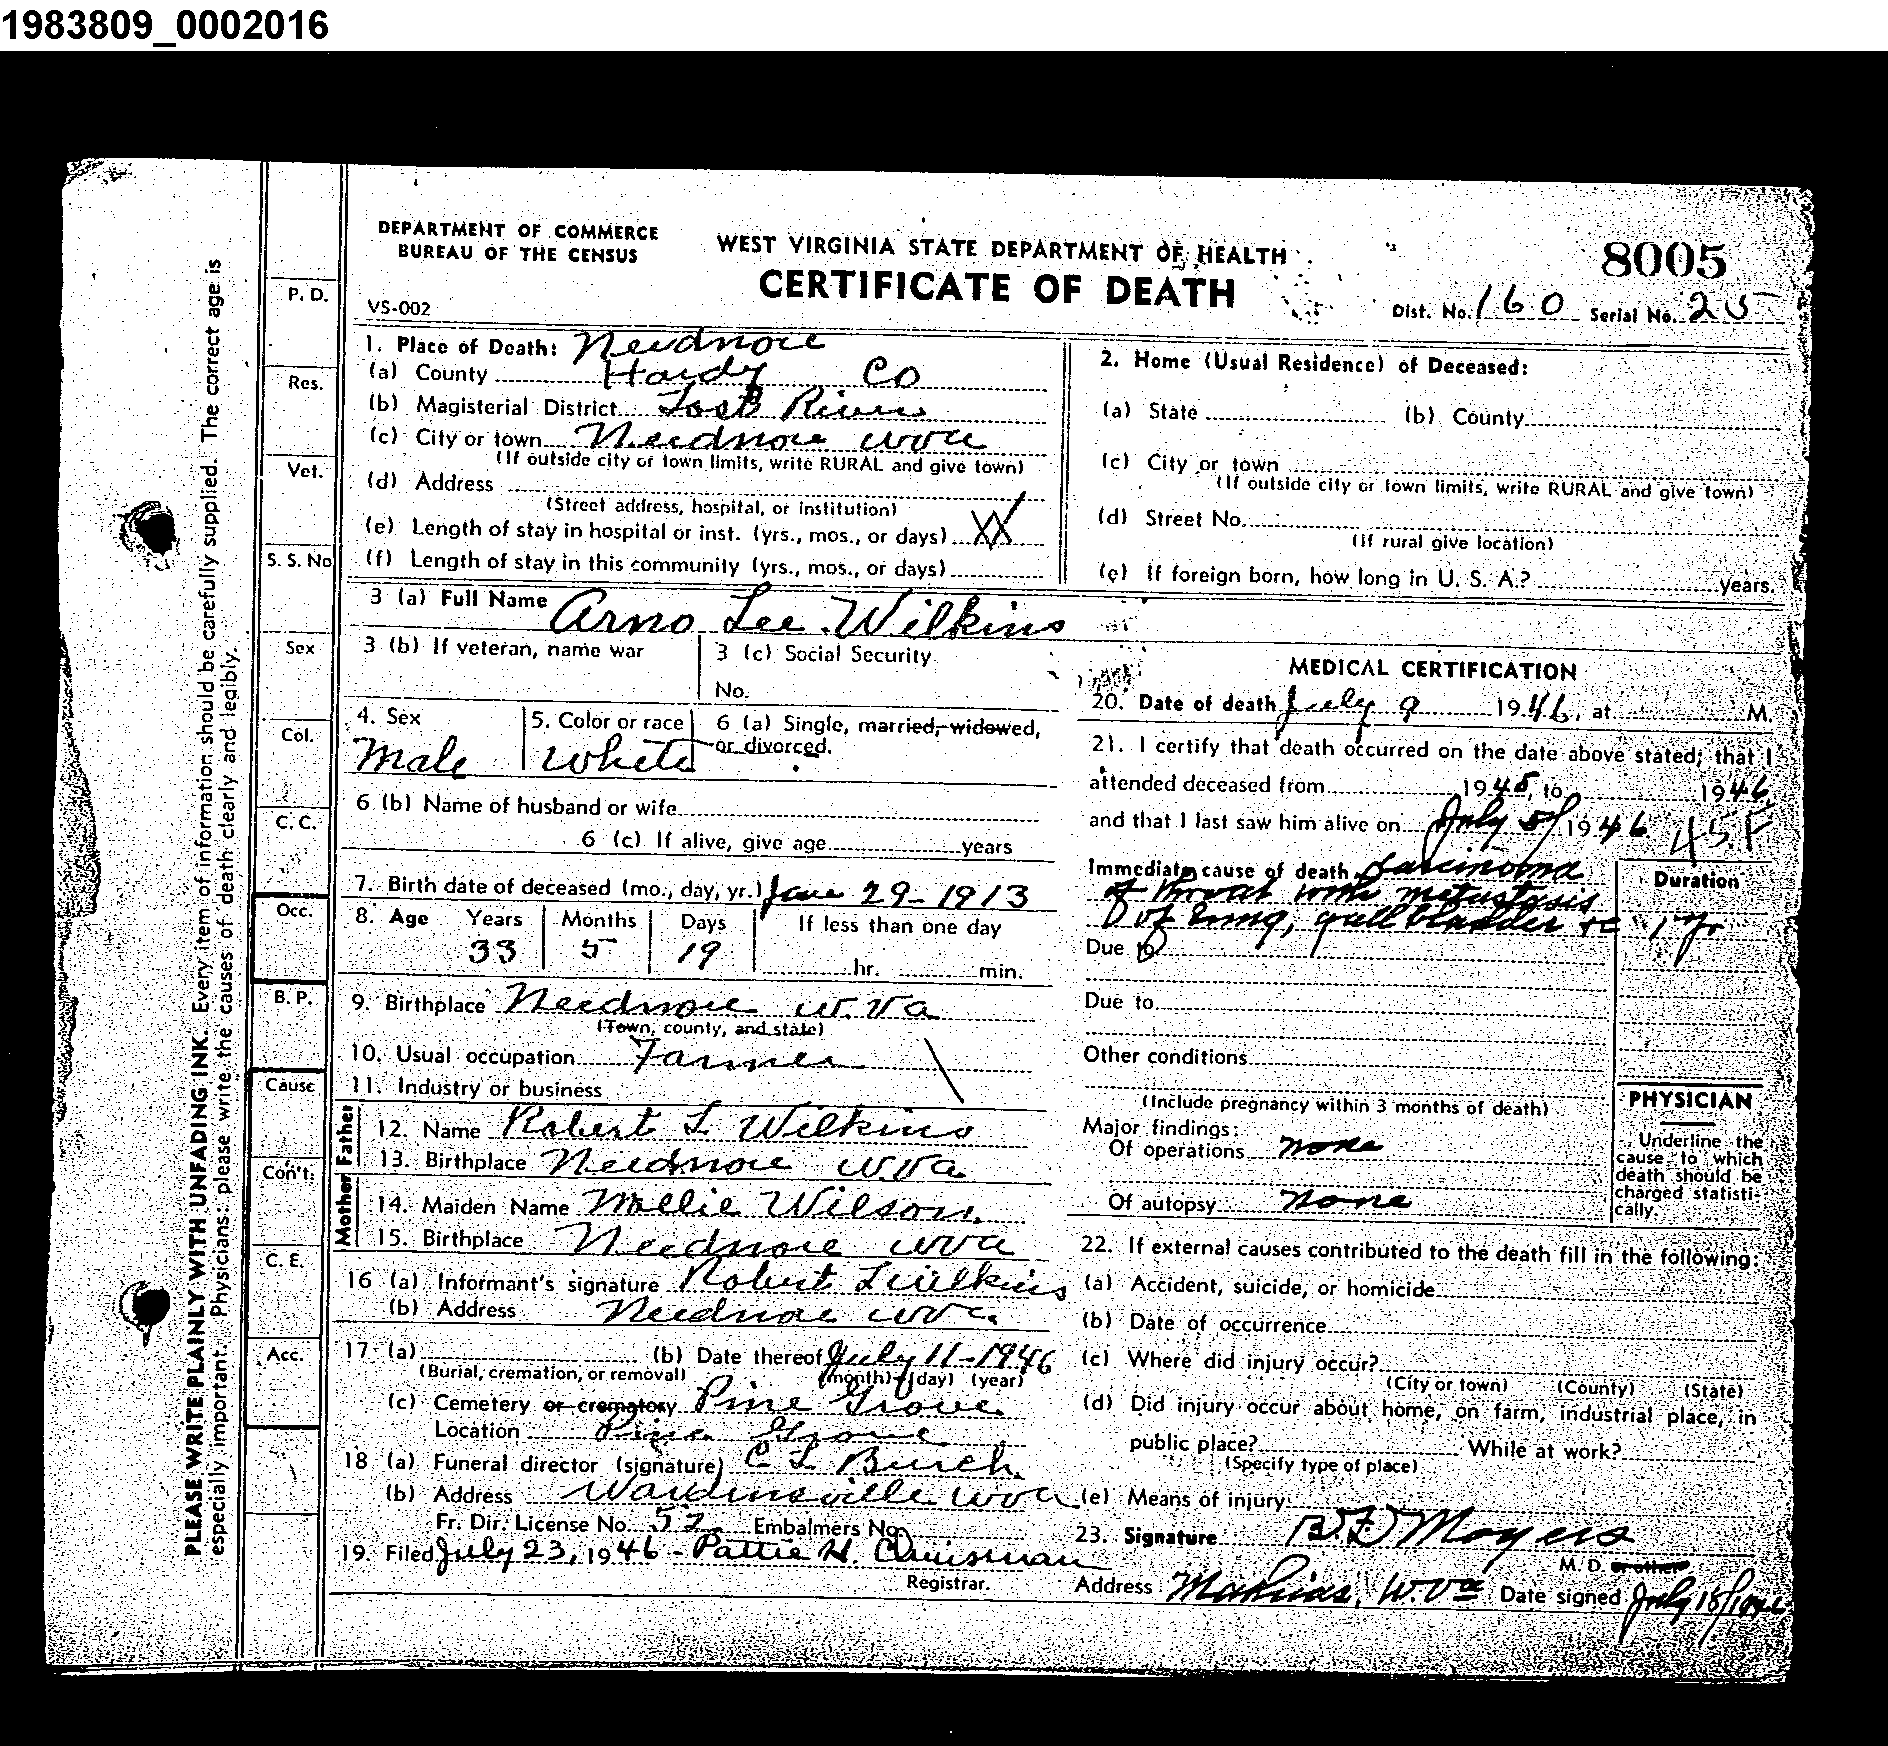 1983809_0002016
DEPARTMENT OF COMMERCE
BUREAU OF THE CENSUS
WEST VIRGINIA STATE DEPARTMENT OF HEALTH
CERTIFICATE OF DEATH
8005
VS-002
Dist. No. 160 Serial No. 25
1. Place of Death: Needmore
(a) County Hardy Co
(b) Magisterial District Lost River
(c) City or town Needmore WVa
(If outside city or town limits, write RURAL and give town)
(d) Address
(Street address, hospital, or institution)
(e) Length of stay in hospital or inst. (yrs., mos., or days)
(f) Length of stay in this community (yrs., mos., or days)
2. Home (Usual Residence) of Deceased:
(a) State (b) County
(c) City or town
(If outside city or town limits, write RURAL and give town)
(d) Street No.
(If rural give location)
(e) If foreign born, how long in U. S. A.? years.
3 (a) Full Name Arno Lee Wilkins
3 (b) If veteran, name war
3 (c) Social Security
No.
4. Sex
Male
5. Color or race
White
6 (a) Single, married, widowed,
or divorced.
6 (b) Name of husband or wife
6 (c) If alive, give age years
7. Birth date of deceased (mo., day, yr.) Jan 29-1913
8. Age Years Months Days If less than one day
33 5 19 hr. min.
9. Birthplace Needmore W.Va
(Town, county, and state)
10. Usual occupation Farmer
11. Industry or business
Father
12. Name Robert L Wilkins
13. Birthplace Needmore W.Va.
Mother
14. Maiden Name Mollie Wilson
15. Birthplace Needmore WVa
16 (a) Informant's signature Robert L Wilkins
(b) Address Needmore WVa.
17 (a) (b) Date thereof July 11-1946
(Burial, cremation, or removal) (month) (day) (year)
(c) Cemetery or crematory Pine Grove
Location Pine Grove
18 (a) Funeral director (signature) C L Burch
(b) Address Wardensville WVa
Fr. Dir. License No. 52 Embalmers No.
19. Filed July 23, 1946 - Pattie H. Chrisman
Registrar.
MEDICAL CERTIFICATION
20. Date of death July 9 1946, at M.
21. I certify that death occurred on the date above stated; that I
attended deceased from 1945, to 1946,
and that I last saw him alive on July 5/ 1946
Immediate cause of death Carcinoma
of throat with metastasis
of lung, gall bladder &c
Duration
1 yr
Due to
Due to
Other conditions
(Include pregnancy within 3 months of death)
Major findings:
Of operations none
Of autopsy none
PHYSICIAN
Underline the
cause to which
death should be
charged statisti-
cally.
22. If external causes contributed to the death fill in the following:
(a) Accident, suicide, or homicide
(b) Date of occurrence
(c) Where did injury occur?
(City or town) (County) (State)
(d) Did injury occur about home, on farm, industrial place, in
public place? While at work?
(Specify type of place)
(e) Means of injury
23. Signature Moyers
M. D. or other
Address Mathias, W.Va Date signed July 18/1946
P. D.
Res.
Vet.
S. S. No
Sex
Col.
C. C.
Occ.
B. P.
Cause
Con't.
C. E.
Acc.
PLEASE WRITE PLAINLY WITH UNFADING INK. Every item of information should be carefully supplied. The correct age is
especially important. Physicians: please write the causes of death clearly and legibly.